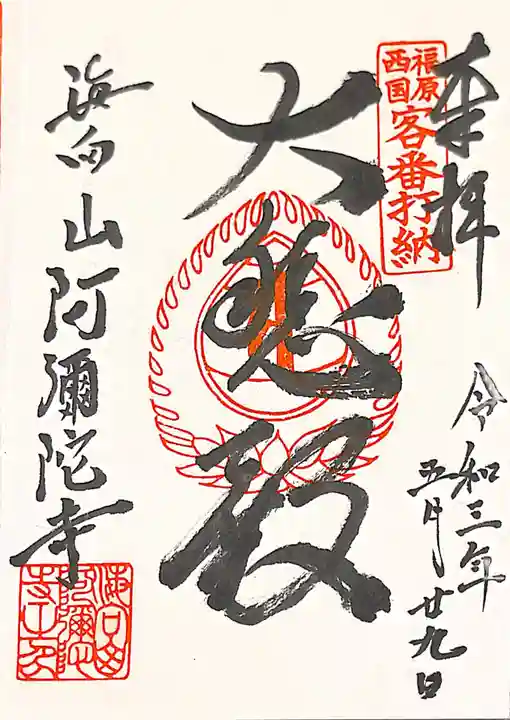 奉拝
福原
西国
客番打納
令和三年
五月廿九日
大悲殿
山阿彌陀寺